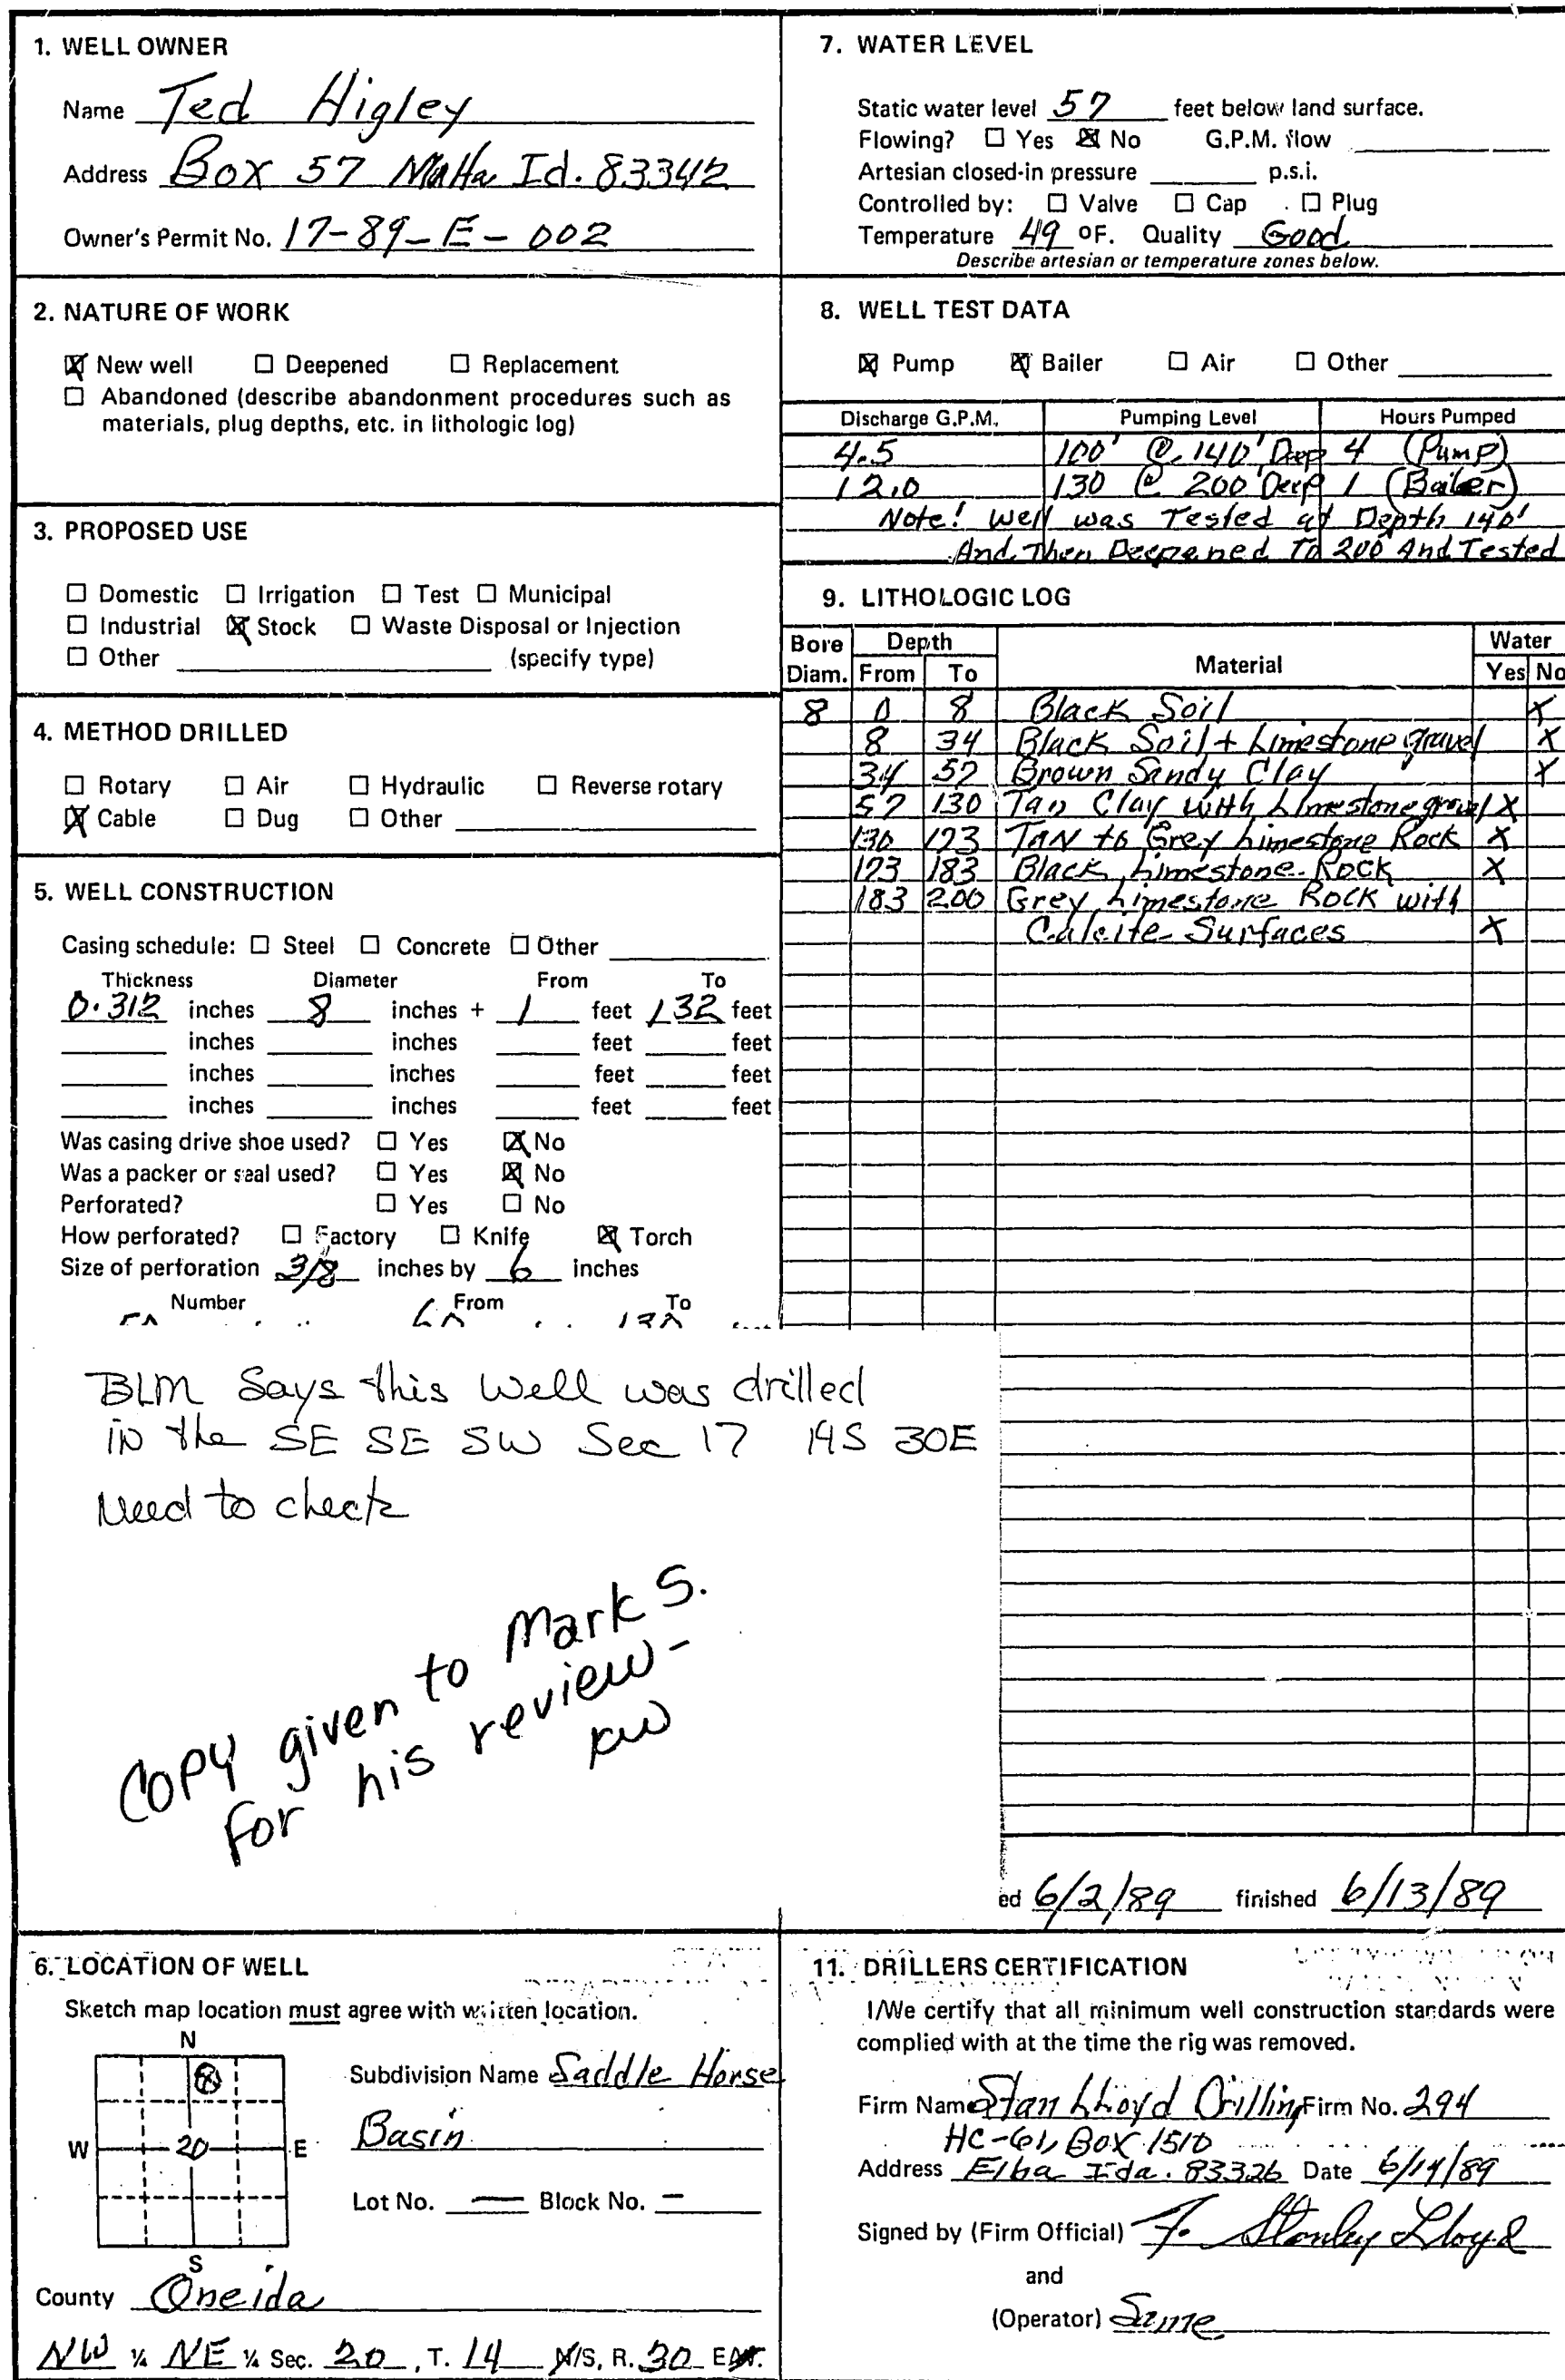 1. WELL OWNER
Name Ted Higley
Address Box 57 Malta Id. 83342
Owner's Permit No. 17-89-E-002
2. NATURE OF WORK
☒ New well ☐ Deepened ☐ Replacement
☐ Abandoned (describe abandonment procedures such as
materials, plug depths, etc. in lithologic log)
3. PROPOSED USE
☐ Domestic ☐ Irrigation ☐ Test ☐ Municipal
☐ Industrial ☒ Stock ☐ Waste Disposal or Injection
☐ Other (specify type)
4. METHOD DRILLED
☐ Rotary ☐ Air ☐ Hydraulic ☐ Reverse rotary
☒ Cable ☐ Dug ☐ Other
5. WELL CONSTRUCTION
Casing schedule: ☐ Steel ☐ Concrete ☐ Other
Thickness Diameter From To
0.312 inches 8 inches + 1 feet 132 feet
inches inches feet feet
inches inches feet feet
inches inches feet feet
Was casing drive shoe used? ☐ Yes ☒ No
Was a packer or seal used? ☐ Yes ☒ No
Perforated? ☐ Yes ☐ No
How perforated? ☐ Factory ☐ Knife ☒ Torch
Size of perforation 3/8 inches by 6 inches
Number From To
BLM Says this Well was drilled
in the SE SE SW Sec 17 14S 30E
Need to check
Copy given to Mark S.
for his review-
KW
6. LOCATION OF WELL
Sketch map location must agree with written location.
N
W 20 E
S
Subdivision Name Saddle Horse
Basin
Lot No. — Block No. —
County Oneida
NW ¼ NE ¼ Sec. 20, T. 14 N/S, R. 30 E/W.
7. WATER LEVEL
Static water level 57 feet below land surface.
Flowing? ☐ Yes ☒ No G.P.M. flow
Artesian closed-in pressure p.s.i.
Controlled by: ☐ Valve ☐ Cap ☐ Plug
Temperature 49 ºF. Quality Good
Describe artesian or temperature zones below.
8. WELL TEST DATA
☒ Pump ☒ Bailer ☐ Air ☐ Other
Discharge G.P.M. Pumping Level Hours Pumped
4.5 100' @ 140' Deep 4 (Pump)
12.0 130 @ 200' Deep 1 (Bailer)
Note! Well was Tested at Depth 140'
And Then Deepened To 200' And Tested
9. LITHOLOGIC LOG
Bore Depth Water
Diam. From To Material Yes No
8 0 8 Black Soil X
8 34 Black Soil + Limestone gravel X
34 57 Brown Sandy Clay X
57 130 Tan Clay with Limestone gravel X
130 173 TAN to Grey Limestone Rock X
173 183 Black Limestone Rock X
183 200 Grey Limestone Rock with
Calcite Surfaces X
ed 6/2/89 finished 6/13/89
11. DRILLERS CERTIFICATION
I/We certify that all minimum well construction standards were
complied with at the time the rig was removed.
Firm Name Stan Lloyd Drilling Firm No. 294
HC-61, BOX 1510
Address Elba Ida. 83326 Date 6/14/89
Signed by (Firm Official) F. Stanley Lloyd
and
(Operator) Same